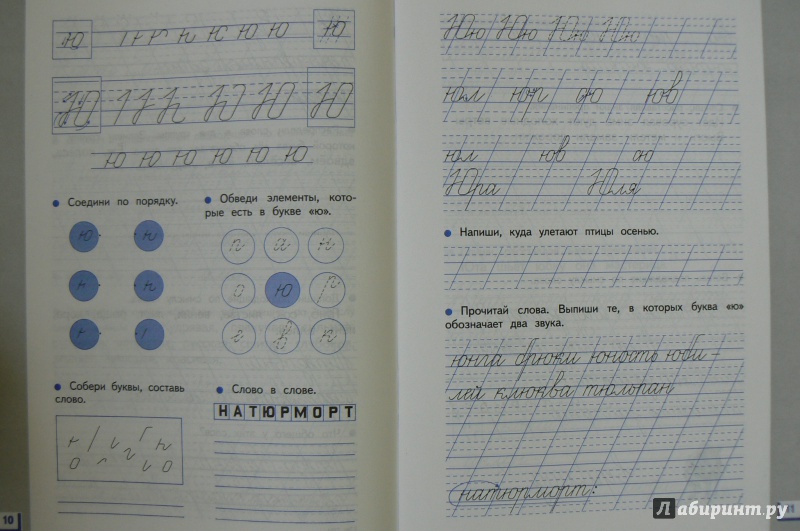 Ю ю Ю
Ю Ю Ю Ю
ю ю ю ю ю ю
Соедини по порядку.
Обведи элементы, кото-
рые есть в букве «ю».
ю
ю
Собери буквы, составь
слово.
Слово в слове.
НАТЮРМОРТ
10
Юю Юю Юю Юю
юл юр ою юв
юл юв ою
Юра Юля
Напиши, куда улетают птицы осенью.
Прочитай слова. Выпиши те, в которых буква «ю»
обозначает два звука.
юнга брюки юность юби-
лей клюква тюльпан
натюрморт:
Лабиринт.ру